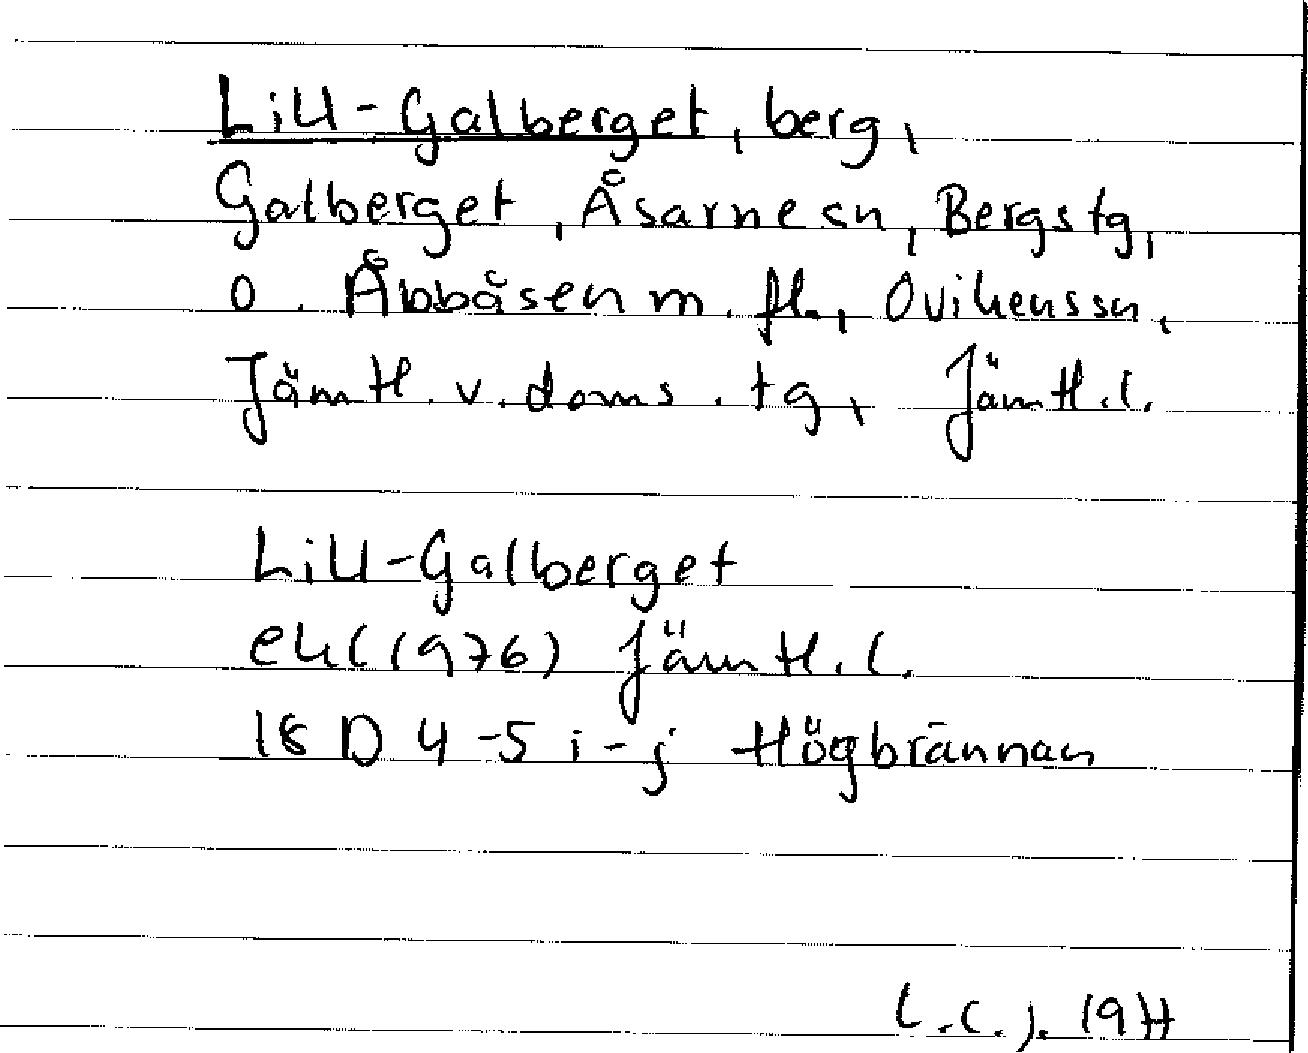 Lill-Galberget, berg,
Galberget, Åsarne sn, Bergs tg,
o. Åbbåsen m. fl., Ovikens sn,
Jämtl. v. doms. tg, Jämtl. l.
Lill-Galberget
ek (1976) Jämtl. l.
18 D 4-5 i-j Högbrännan
L.C.J. 1977